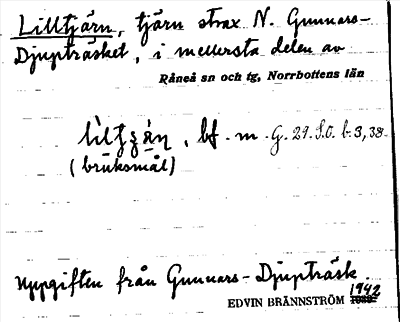 Lilltjärn, tjärn strax N. Gunnars-
Djupträsket, i mellersta delen av
Råneå sn och tg, Norrbottens län
bf. m. G. 29. S.O. b. 3, 38.
(bruksmål)
Uppgiften från Gunnars-Djupträsk.
1942
EDVIN BRÄNNSTRÖM